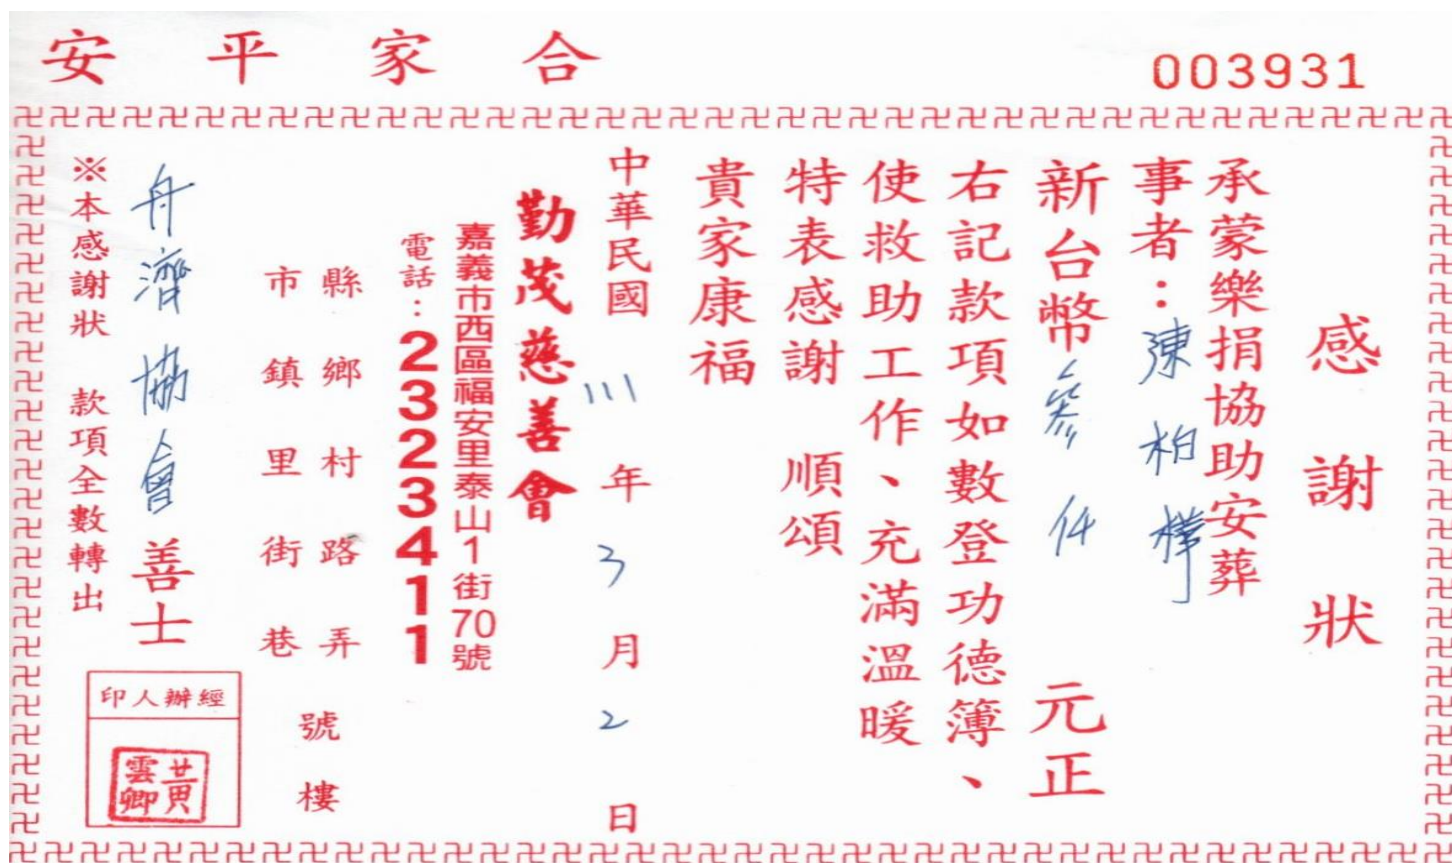 合家平安
003931
感謝狀
承蒙樂捐協助安葬
事者：陳柏樺
新台幣參仟元正
右記款項如數登功德簿、
使救助工作、充滿溫暖
特表感謝 順頌
貴家康福
中華民國111年3月2日
勤茂慈善會
嘉義市西區福安里泰山1街70號
電話：2323411
縣鄉村路弄號
市鎮里街巷樓
舟濟協會善士
※本感謝狀 款項全數轉出
經辦人印
黃雲卿